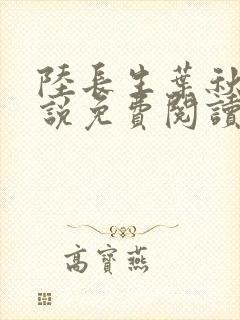 陸長生葉秋
說免費閱讀
高寶燕